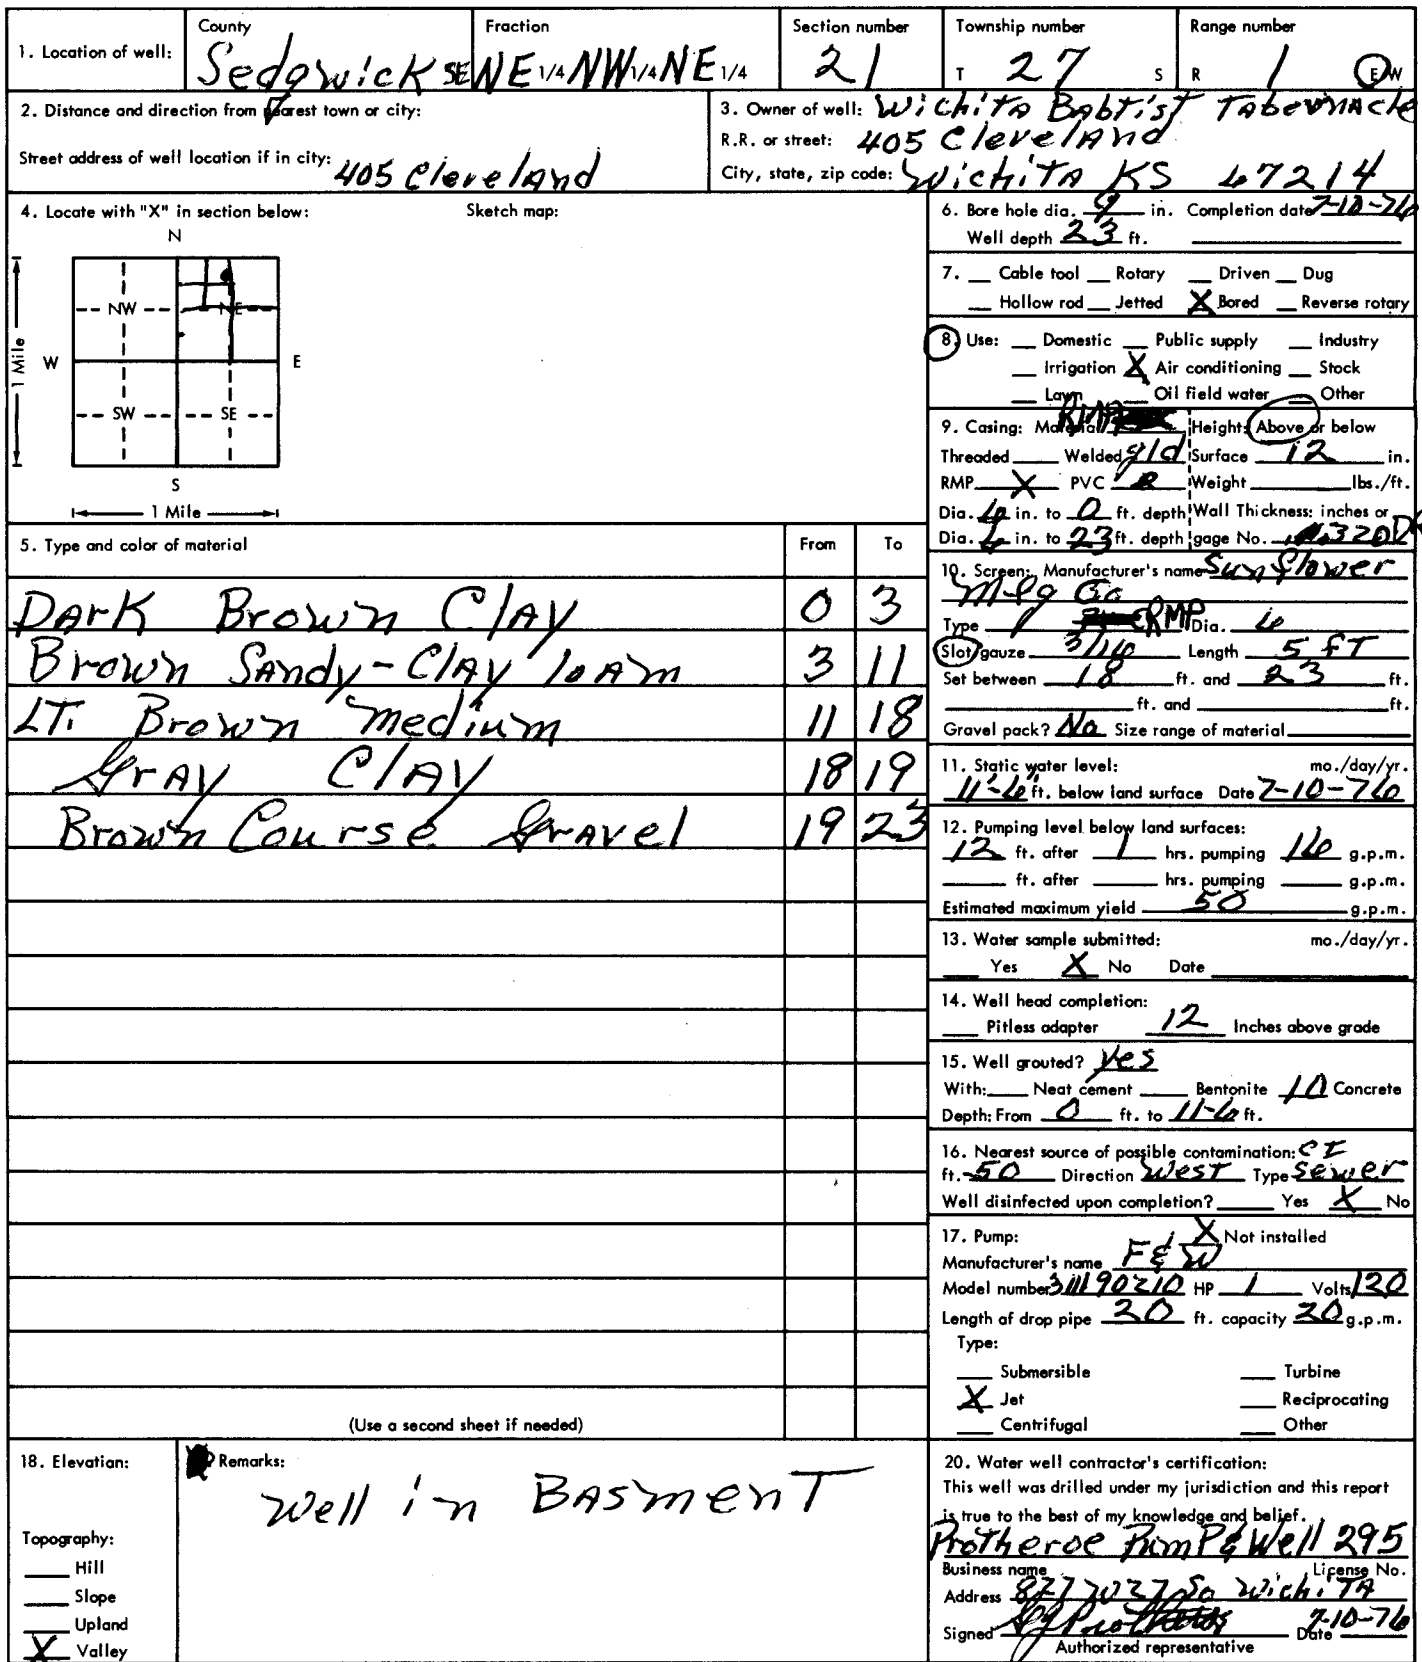 1. Location of well:
County
Sedgwick
Fraction
SE NE 1/4 NW 1/4 NE 1/4
Section number
21
Township number
T 27 S
Range number
R 1 E W
2. Distance and direction from nearest town or city:
Street address of well location if in city: 405 Cleveland
3. Owner of well: Wichita Babtist Tabernacle
R.R. or street: 405 Cleveland
City, state, zip code: Wichita KS 67214
4. Locate with "X" in section below:
Sketch map:
N
NW NE
W E
1 Mile
SW SE
S
1 Mile
5. Type and color of material From To
Dark Brown Clay 0 3
Brown Sandy-Clay loam 3 11
LT. Brown Medium 11 18
Gray Clay 18 19
Brown Course Gravel 19 23
(Use a second sheet if needed)
6. Bore hole dia. 9 in. Completion date 7-10-76
Well depth 23 ft.
7. Cable tool Rotary Driven Dug
Hollow rod Jetted X Bored Reverse rotary
8. Use: Domestic Public supply Industry
Irrigation X Air conditioning Stock
Lawn Oil field water Other
9. Casing: Material RMP Height: Above or below
Threaded Welded gld Surface 12 in.
RMP X PVC Weight lbs./ft.
Dia. 6 in. to 0 ft. depth Wall Thickness: inches or
Dia. 6 in. to 23 ft. depth gage No. .320
10. Screen: Manufacturer's name Sunflower
Mfg Co
Type RMP Dia. 6
Slot/gauze 3/16 Length 5 FT
Set between 18 ft. and 23 ft.
ft. and ft.
Gravel pack? No Size range of material
11. Static water level: mo./day/yr.
11'-6" ft. below land surface Date 7-10-76
12. Pumping level below land surfaces:
12 ft. after 1 hrs. pumping 16 g.p.m.
ft. after hrs. pumping g.p.m.
Estimated maximum yield 50 g.p.m.
13. Water sample submitted: mo./day/yr.
Yes X No Date
14. Well head completion:
Pitless adapter 12 Inches above grade
15. Well grouted? yes
With: Neat cement Bentonite 10 Concrete
Depth: From 0 ft. to 11-6 ft.
16. Nearest source of possible contamination: CI
ft. 50 Direction West Type Sewer
Well disinfected upon completion? Yes X No
17. Pump: X Not installed
Manufacturer's name F & W
Model number 311190210 HP 1 Volts 120
Length of drop pipe 20 ft. capacity 20 g.p.m.
Type:
Submersible Turbine
X Jet Reciprocating
Centrifugal Other
18. Elevation:
Topography:
Hill
Slope
Upland
X Valley
Remarks:
Well in Basment
20. Water well contractor's certification:
This well was drilled under my jurisdiction and this report
is true to the best of my knowledge and belief.
Protheroe Pump & Well 295
Business name License No.
Address So Wichita
Signed Date 7-10-76
Authorized representative